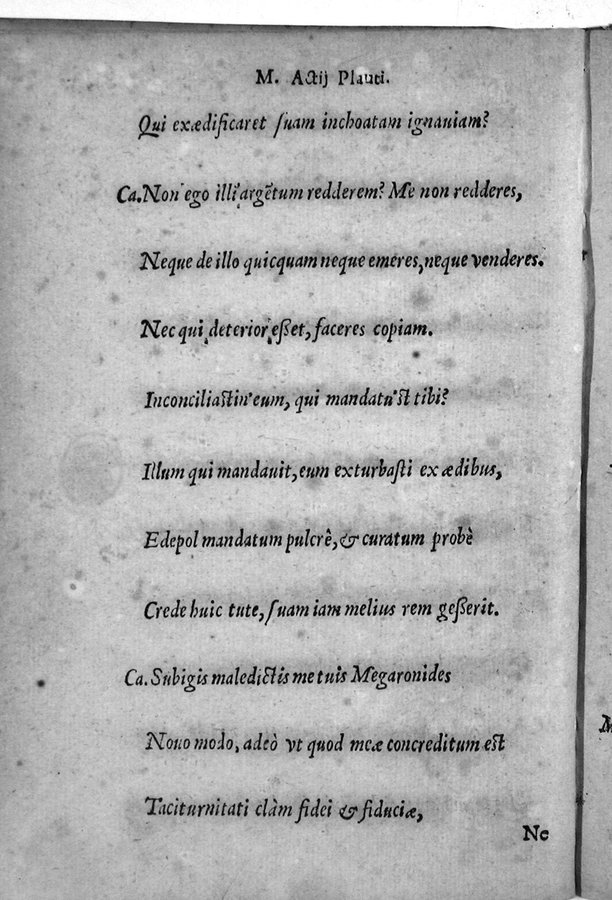 M. Actij Plauti.
Qui exædificaret suam inchoatam ignauiam?
Ca. Non ego illi argẽtum redderem? Me non redderes,
Neque de illo quicquam neque emeres, neque venderes.
Nec qui deterior eßet, faceres copiam.
Inconciliastin' eum, qui mandatu'st tibi?
Illum qui mandauit, eum exturbasti ex ædibus,
Edepol mandatum pulcrê, & curatum probè
Crede huic tute, suam iam melius rem geßerit.
Ca. Subigis maledictis me tuis Megaronides
Nouo modo, adeò vt quod meæ concreditum est
Taciturnitati clàm fidei & fiduciæ,
Ne